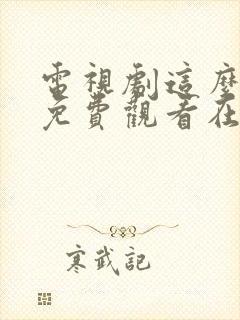 電視劇這麼
免費觀看在
寒武記